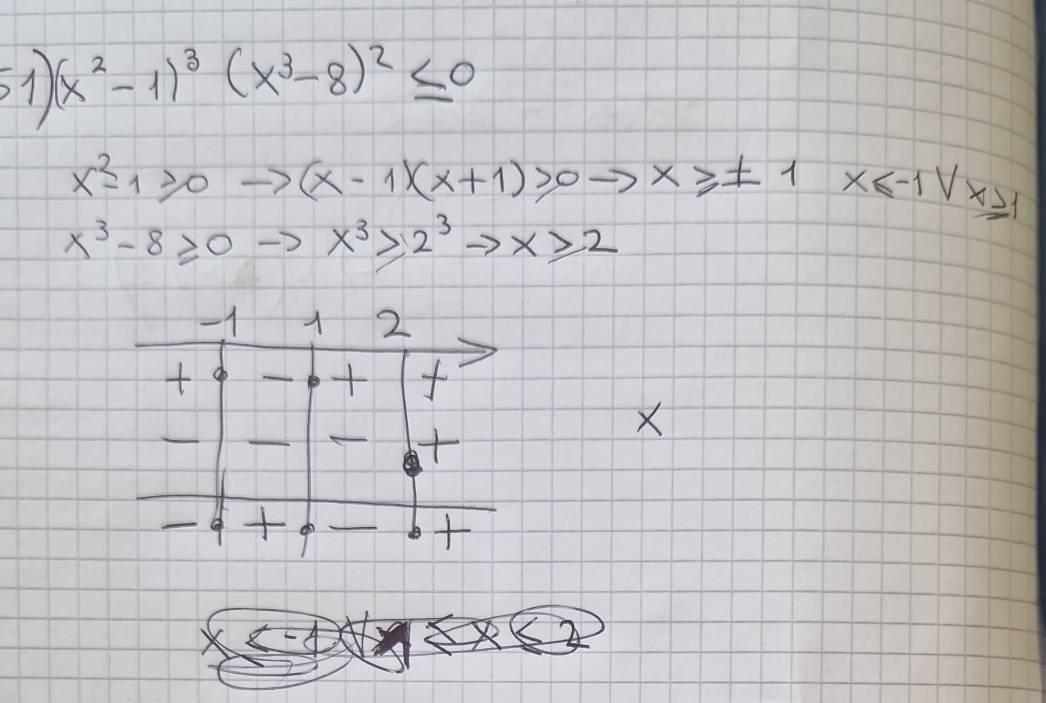 51) (x² - 1)³ (x³ - 8)² ≤ 0
x² - 1 ≥ 0 → (x - 1)(x + 1) ≥ 0 → x ≥ ± 1 x ≤ -1 ∨ x ≥ 1
x³ - 8 ≥ 0 → x³ ≥ 2³ → x ≥ 2
-1 1 2
+ - + +
- - - +
x
- + - +
x ≤ -1 ∨ 1 ≤ x ≤ 2